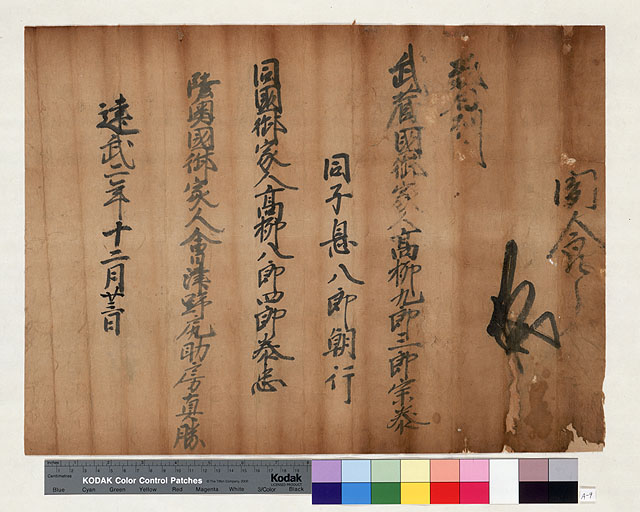 武蔵國御家人高柳九郎三郎宗泰
同子息八郎朝行
同國御家人高柳八郎四郎泰忠
陸奥國御家人會津野尻助房真勝
建武二年十二月廿三日
KODAK Color Control Patches
Kodak
LICENSED PRODUCT
Inches
Centimetres
Blue Cyan Green Yellow Red Magenta White 3/Color Black
A-9